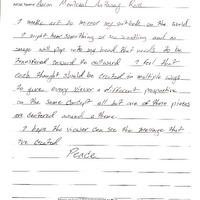 Montreal Anthony Rush
I make art to mirror my outlook on the world.
I might hear something or see something and an
image will pop into my head that needs to be
transferred onward to outward I feel that
each thought should be created in multiple ways
to give every viewer a different perspective
on the same concept all but one of these pieces
are centered around a theme.
I hope the viewer can see the message that
I've created
Peace